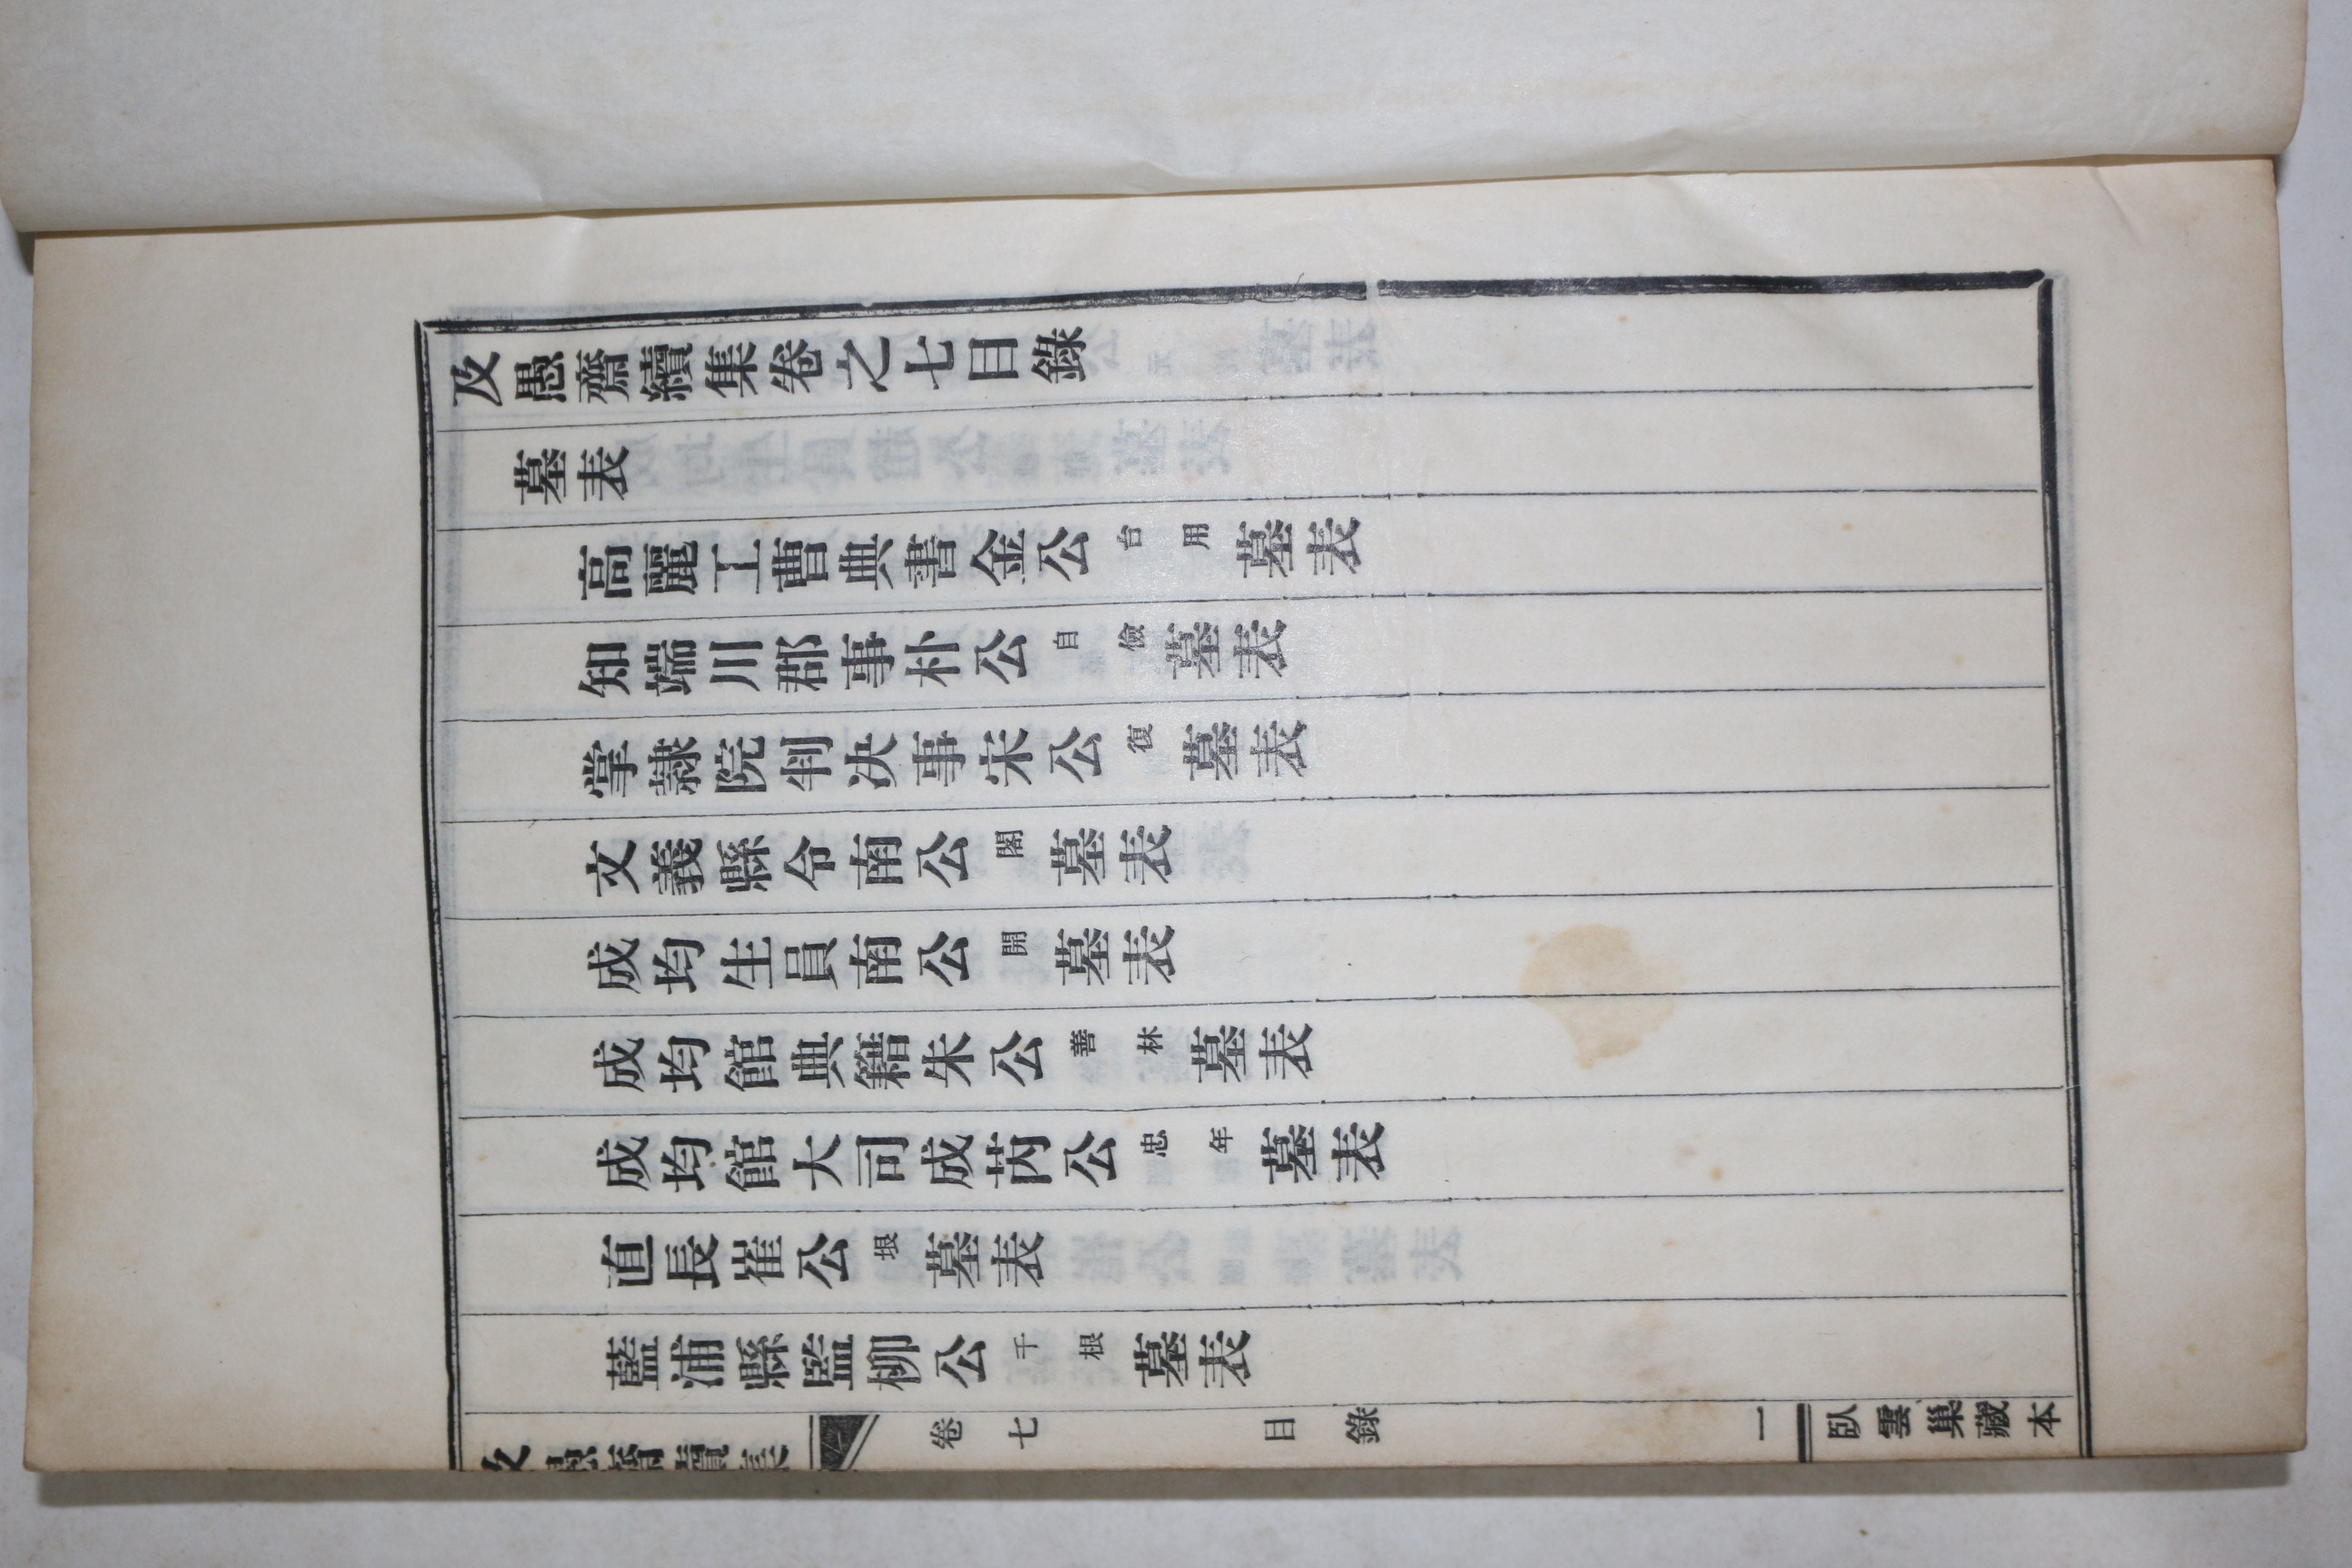 及愚齋續集卷之七目錄
墓表
高麗工曹典書金公台用墓表
知端川郡事朴公自儉墓表
掌隷院判决事宋公復墓表
文義縣令南公閣墓表
成均生員南公開墓表
成均館典籍朱公善林墓表
成均館大司成芮公忠年墓表
直長崔公垠墓表
藍浦縣監柳公千根墓表
及愚齋續集 卷七 目錄 一 臥雲巢藏本